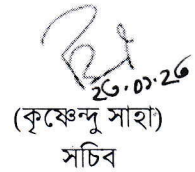 ২৫.০১.২৬
(কৃষ্ণেন্দু সাহা)
সচিব